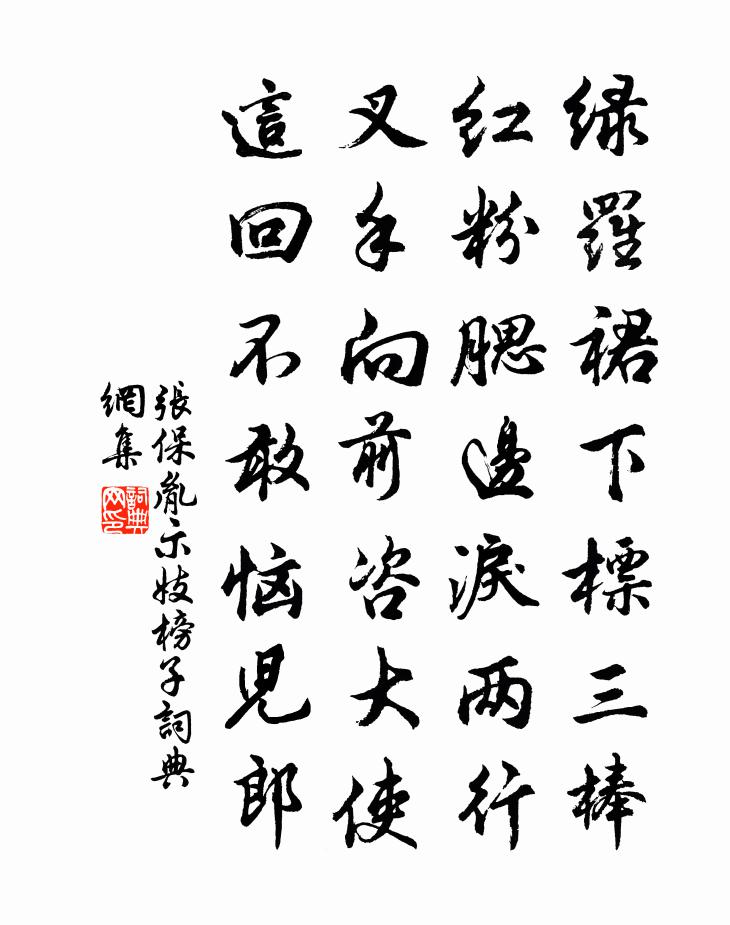 绿羅裙下標三棒
红粉腮邊淚两行
叉手向前咨大使
這回不敢恼児郎
張保胤示妓榜子詞典
網集
詞典网印